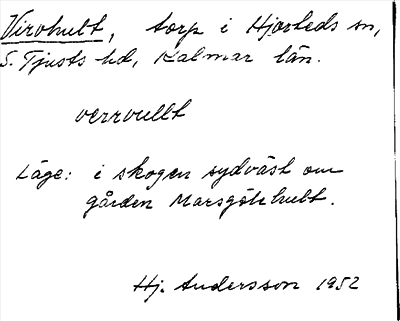 Virohult, torp i Hjorteds sn,
S. Tjusts hd, Kalmar län.
verrvullt
Läge: i skogen sydväst om
gården Marsgölehult.
Hj. Andersson 1952